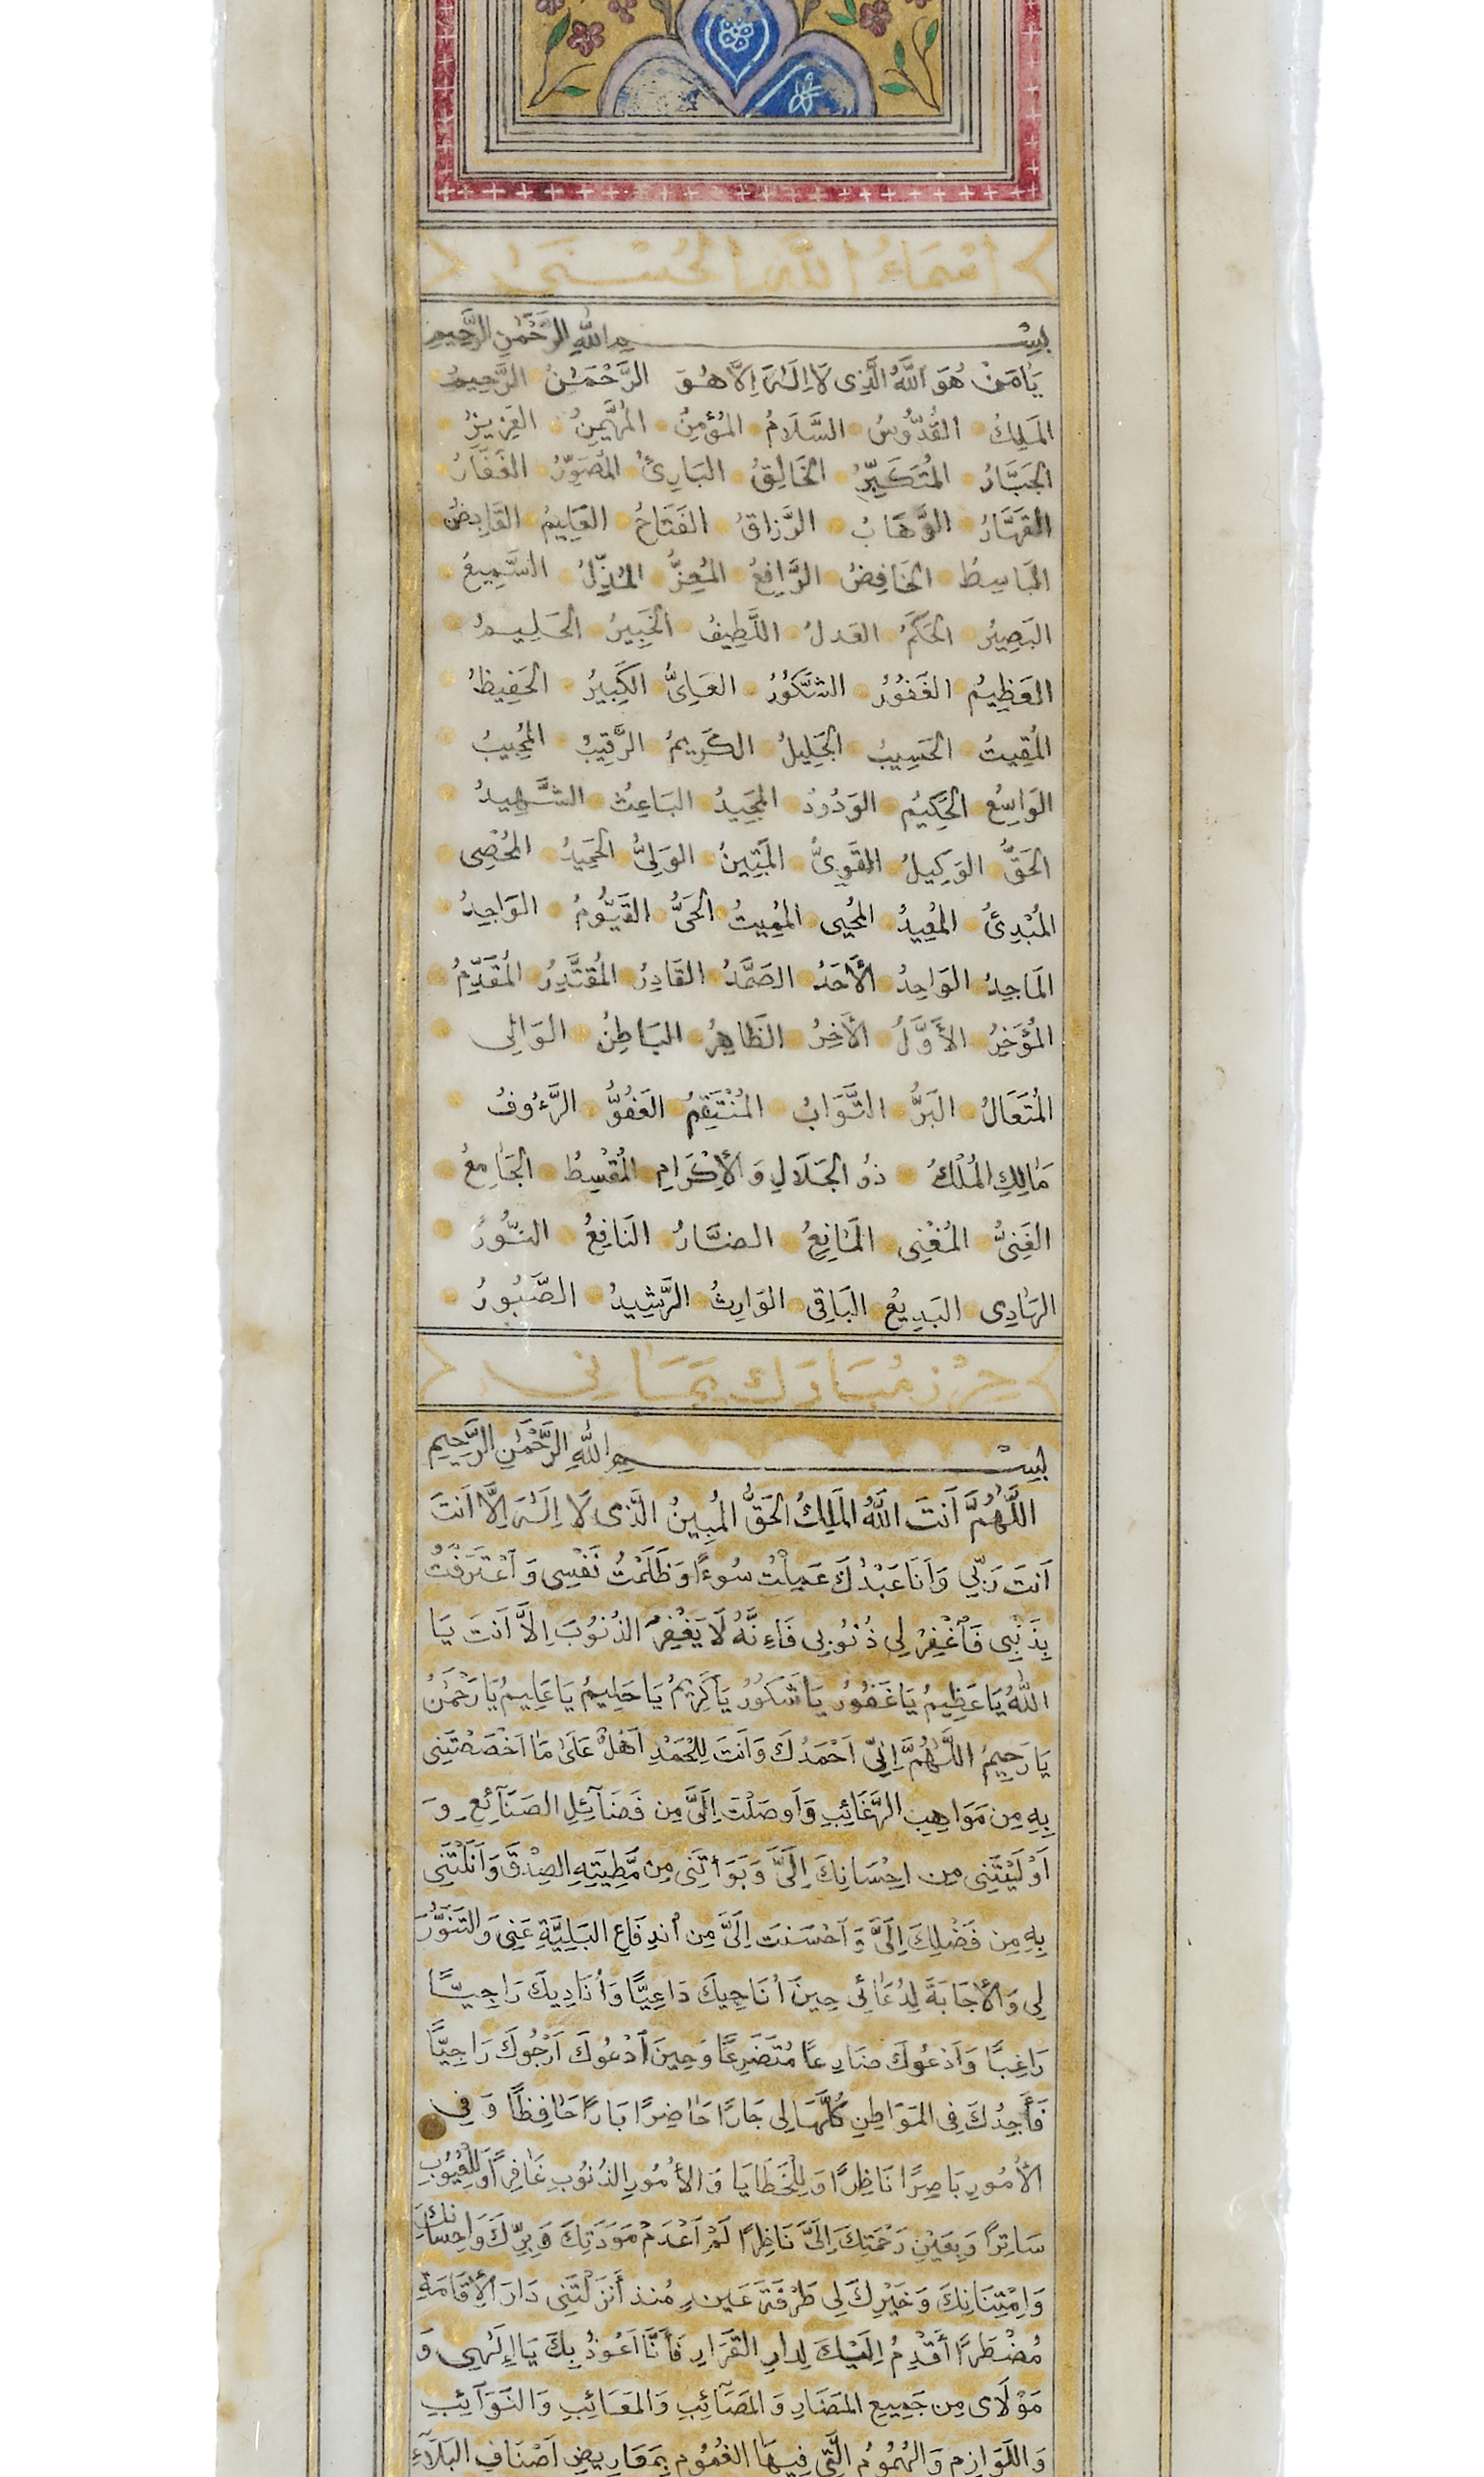 اَسْمَاءُ اللّٰهِ الحُسْنَى
بِسْمِ اللّٰهِ الرَّحْمٰنِ الرَّحِيمِ
يَامَنْ هُوَ اللّٰهُ الَّذِى لَا اِلٰهَ اِلَّا هُوَ الرَّحْمٰنُ الرَّحِيمُ
المَلِكُ القُدُّوسُ السَّلَامُ المُؤْمِنُ المُهَيْمِنُ العَزِيزُ
الجَبَّارُ المُتَكَبِّرُ الخَالِقُ البَارِئُ المُصَوِّرُ الغَفَّارُ
القَهَّارُ الوَهَّابُ الرَّزاقُ الفَتَاحُ العَلِيمُ القَابِضُ
البَاسِطُ الخَافِضُ الرَّافِعُ المُعِزُّ المُذِّلُ السَّمِيعُ
البَصِيْرُ الحَكَمُ العَدلُ اللَّطِيفُ الخَبِيْرُ الحَلِيمُ
العَظِيمُ الغَفُوْرُ الشَّكُوْرُ العَلِىُّ الكَبِيْرُ الحَفِيظُ
المُقِيتُ الحَسِيبُ الجَلِيلُ الكَرِيمُ الرَّقِيبُ المُجِيبُ
الوَاسِعُ الحَكِيمُ الوَدُودُ المَجِيدُ البَاعِثُ الشَّهِيدُ
الحَقُّ الوَكِيلُ القَوِىُّ المَتِينُ الوَلِىُّ الحَمِيدُ المُحْصِى
المُبْدِئُ المُعِيدُ المُحْيِى المُمِيتُ الحَىُّ القَيُّومُ الوَاجِدُ
المَاجِدُ الوَاحِدُ الأَحَدُ الصَمَدُ القَادِرُ المُقْتَدِرُ المُقَدِّمُ
المُؤَخِرُ الأَوَّلُ الأَخِرُ الظَّاهِرُ البَاطِنُ الوَالِى
المُتَعَالُ البَرُّ التَّوَابُ المُنْتَقِمُ العَفُوُّ الرَّءُوفُ
مَالِكِ المُلْكُ ذُو الجَلَالِ وَالأِكْرَامِ المُقْسِطُ الجَامِعُ
الغَنِىُّ المُغْنِى المَانِعُ الضَّارُ النَافِعُ النُّورُ
الهَادِى البَدِيعُ البَاقِى الوَارِثُ الرَّشِيدُ الصَّبُورُ
حِرْز مُبَارَك يَمَانِى
بِسْمِ اللّٰهِ الرَّحْمٰنِ الرَّحِيمِ
اللّٰهُمَّ اَنتَ اللّٰهُ المَلِكُ الحَقُّ المُبِينُ الَّذِى لَا اِلٰهَ اِلَّا اَنتَ
اَنتَ رَبِّي وَاَنَا عَبْدُكَ عَمِلْتُ سُوءًا وَظَلَمْتُ نَفْسِى وَاَعْتَرَفْتُ
بِذَنْبِى فَاَغْفِرْ لِى ذُنُوْبِى فَاِنَّهُ لَا يَغْفِرُ الذُنُوْبَ اِلَّا اَنتَ يَا
اللّٰهُ يَا عَظِيمُ يَا غَفُورُ يَا شَكُوْرُ يَا كَرِيمُ يَا حَلِيمُ يَا عَلِيمُ يَا رَحْمٰنُ
يَا رَحِيمُ اللّٰهُمَّ اِنِّي اَحْمَدُكَ وَاَنتَ لِلْحَمْدِ اَهْلٌ عَلَى مَا اَخْصَصْتَنِى
بِهِ مِن مَوَاهِبِ الرَّغَائِبِ وَاَوصَلْتَ اِلَىَّ مِن فَضَآئِلِ الصَنَآئِعِ وَ
اَوْلَيْتَنِى مِن اِحْسَانِكَ اِلَىَّ وَبَوَأتَنِى مِن مَظِيَتِهِ الصِدْقَ وَاَنَلْتَنِى
بِهِ مِن فَضْلِكَ اِلَىَّ وَاَحْسَنتَ اِلَىَّ مِن اَندِفَاعِ البَلِيَّةِ عَنِى وَالتَنَوُّرَ
لِى وَالأِجَابَةَ لِدُعَائِى حِينَ اُنَاجِيكَ دَاعِيًّا وَاُنَادِيكَ رَاجِيًّا
رَاغِبًا وَاَدْعُوكَ ضَارِعًا مُتَضَرِعًا وَحِينَ اَدْعُوكَ اَرْجُوكَ رَاجِيًّا
فَأَجِدُكَ فِى المَوَاطِنِ كُلِّهَا لِى جَارًا حَاضِرًا بَارًا حَافِظًا وَفِى
الأُمُورِ بَاصِرًا نَاظِرًا وَلِلْخَطَايَا وَالأُمُورِ الذُنُوْبِ غَافِرًا وَلِلْعُيُوْبِ
سَاتِرًا وَبِعَيْنِ رَحْمَتِكَ اِلَىَّ نَاظِرًا لَمْ اَعْدَمْ مَوَدَتِكَ وَبِرِّكَ وَاِحسَانِكَ
وَاِمْتِنَانِكَ وَخَيْرِكَ لِى طَرْفَةَ عَينٍ مُنذ أَنزَلْتَنِى دَارَ الأِقَامَةِ
مُضْطَرًا أَقْدِمُ اِلَيْكَ لِدارِ القَرَارِ فَأَنَا اَعُوذُ بِكَ يَا اِلٰهِى وَ
مَوْلَاى مِن جَمِيعِ المَضَارِ وَالمَصَآئِبِ وَالمَعَائِبِ وَالنَوَآئِبِ
وَاللَوَازِمِ وَالهُمُومُ الَّتِى فِيهَا الغُمُوْمِ بِمَعَارِيضِ اَصْنَافِ البَلَآءِ